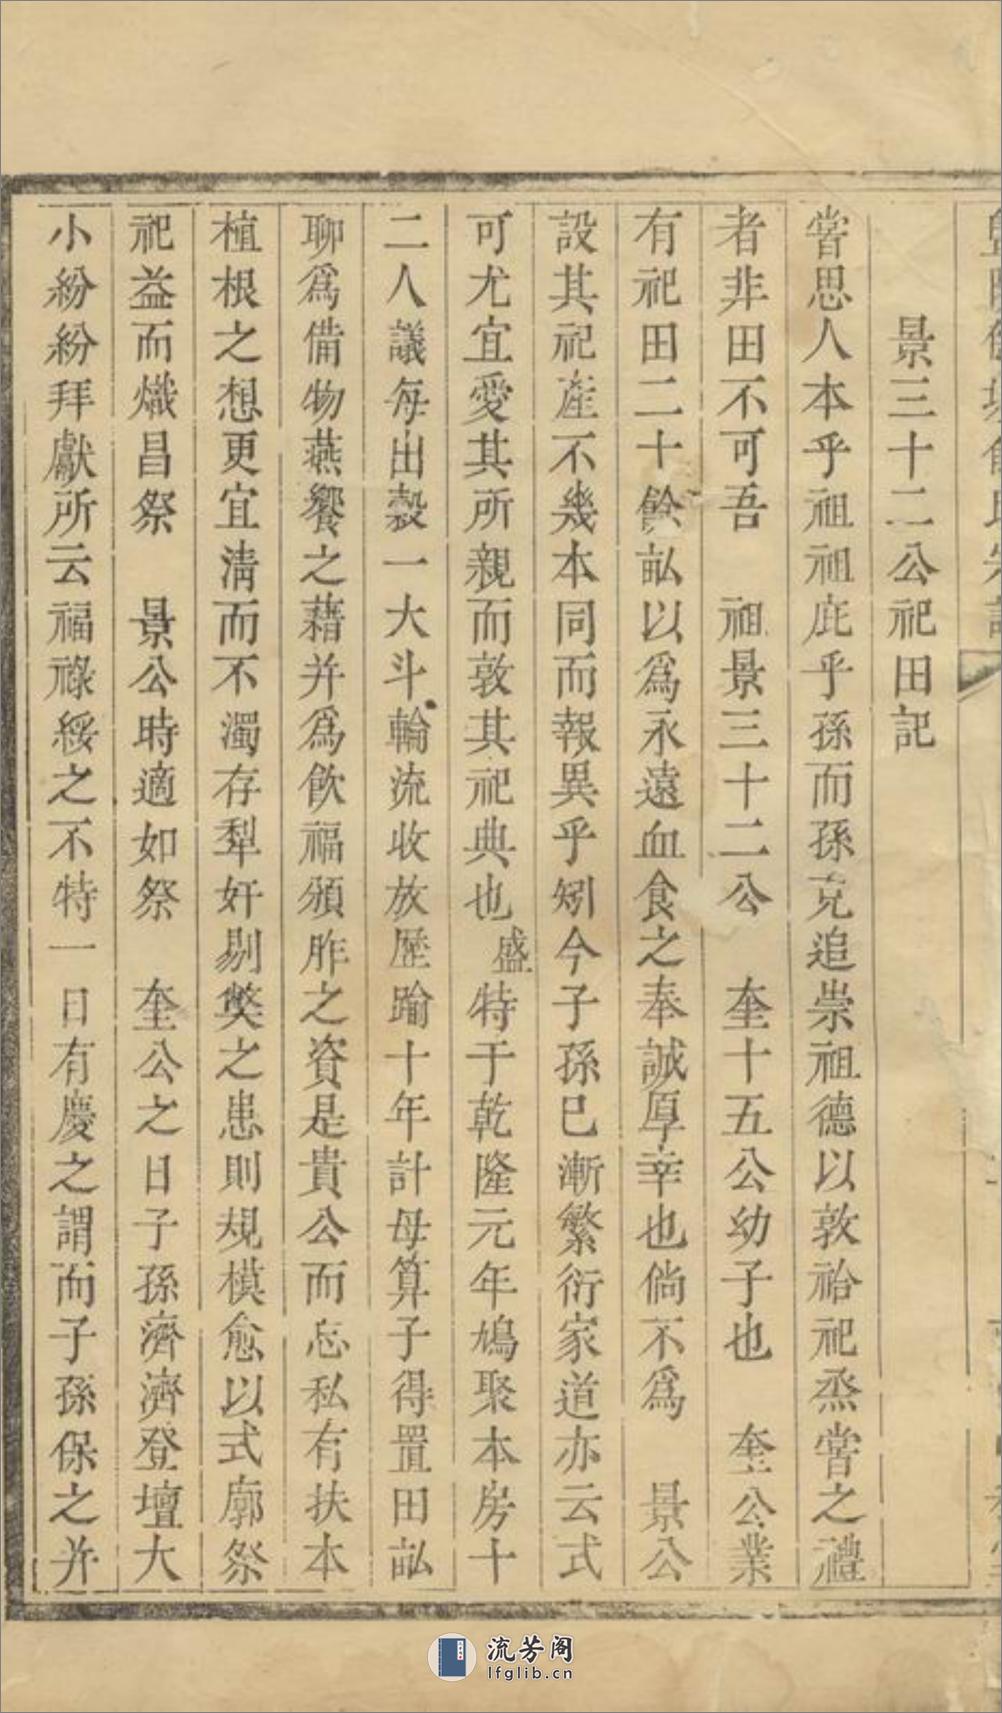 景三十二公祀田記
嘗思人本乎祖祖庇乎孫而孫克追崇祖德以敦祫祀烝嘗之禮
者非田不可吾　祖景三十二公　奎十五公幼子也　奎公業
有祀田二十餘畝以為永遠血食之奉誠厚幸也倘不為　景公
設其祀產不幾本同而報異乎矧今子孫已漸繁衍家道亦云式
可尤宜愛其所親而敦其祀典也盛特于乾隆元年鳩聚本房十
二人議每出穀一大斗輪流收放歷踰十年計母算子得置田畝
聊為備物燕饗之藉并為飲福頒胙之資是貴公而忘私有扶本
植根之想更宜清而不濁存犁奸剔獘之患則規模愈以式廓祭
祀益而熾昌祭　景公時適如祭　奎公之日子孫濟濟登壇大
小紛紛拜獻所云福祿綏之不特一日有慶之謂而子孫保之并
流芳阁
lfglib.cn